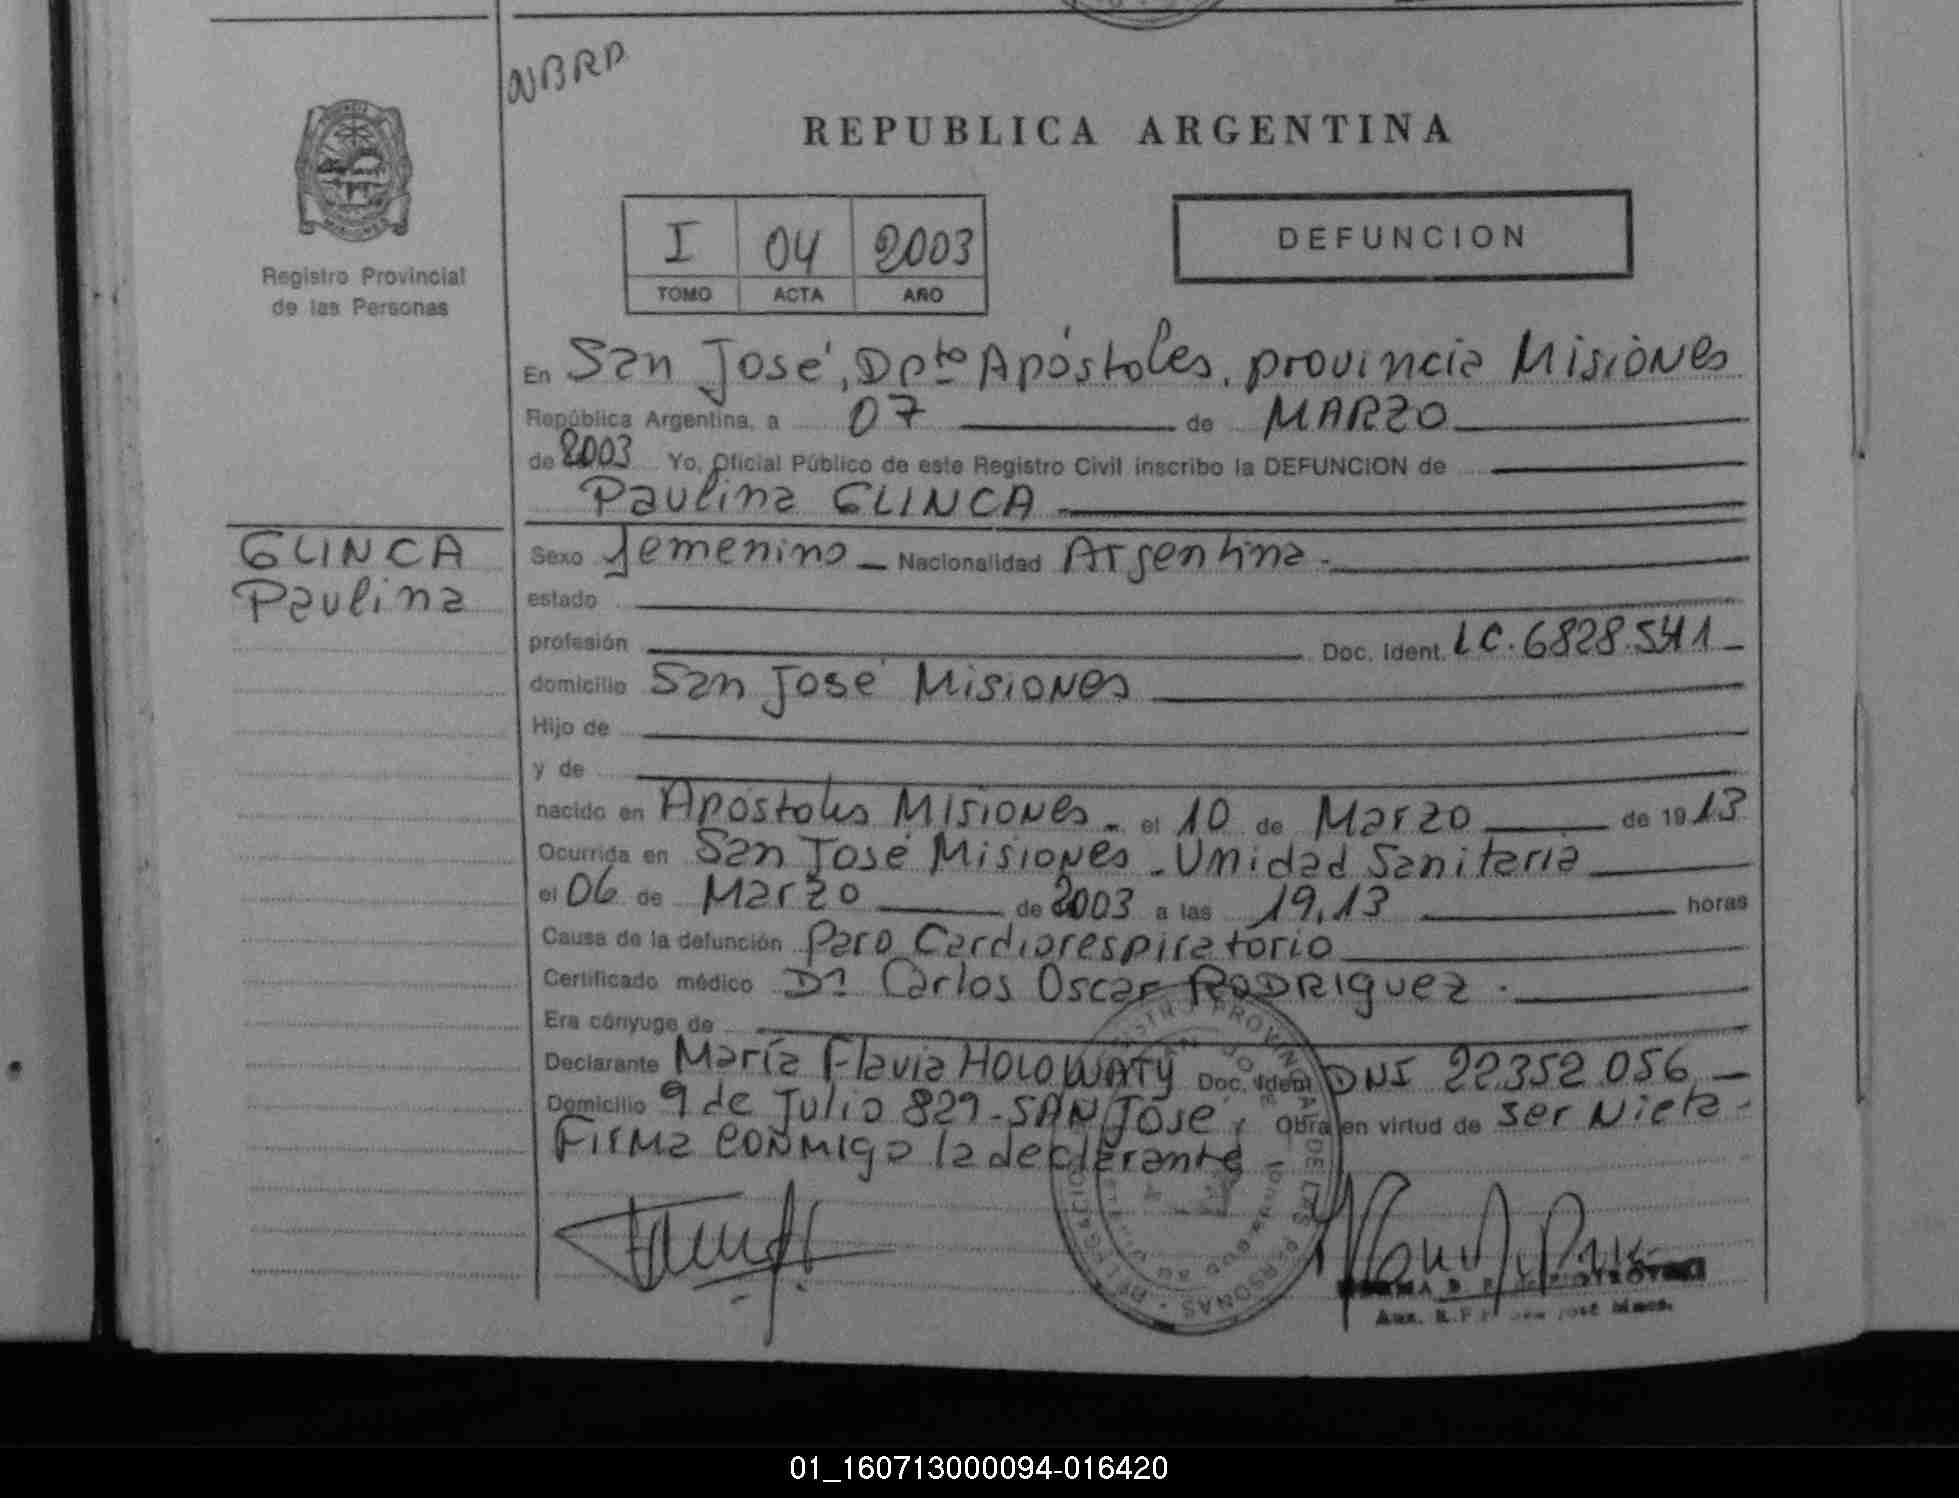 NBRD
REPUBLICA ARGENTINA
I 04 2003
TOMO ACTA AÑO
DEFUNCION
Registro Provincial
de las Personas
En San José, Dpto Apóstoles, provincia Misiones
República Argentina, a 07 de MARZO
de 2003 Yo, Oficial Público de este Registro Civil inscribo la DEFUNCION de
Paulina GLINCA
GLINCA
Paulina
Sexo femenino Nacionalidad Argentina
estado
profesión Doc. Ident. LC. 6828.541
domicilio San José Misiones
Hijo de
y de
nacido en Apóstoles Misiones el 10 de Marzo de 1913
Ocurrida en San José Misiones - Unidad Sanitaria
el 06 de Marzo de 2003 a las 19,13 horas
Causa de la defunción Paro Cardiorespiratorio
Certificado médico Dr Carlos Oscar RODRIguez
Era cónyuge de
Declarante María Flavia HOLOWATY Doc. Ident DNI 22352.056
Domicilio 9 de Julio 829 - SAN José y Obra en virtud de ser Nieta
Firma conmigo la declarante
PROVINCIAL DE LAS PERSONAS
Aux. R.P.P. San José Mnes.
01_160713000094-016420